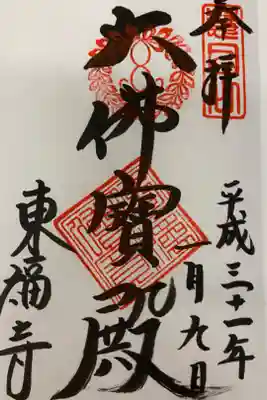 奉拝
平成三十一年
一月九日
大佛寶殿
東福寺